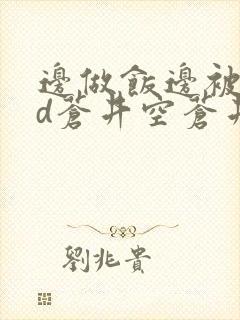 邊做飯邊被
d蒼井空蒼井
劉兆貴